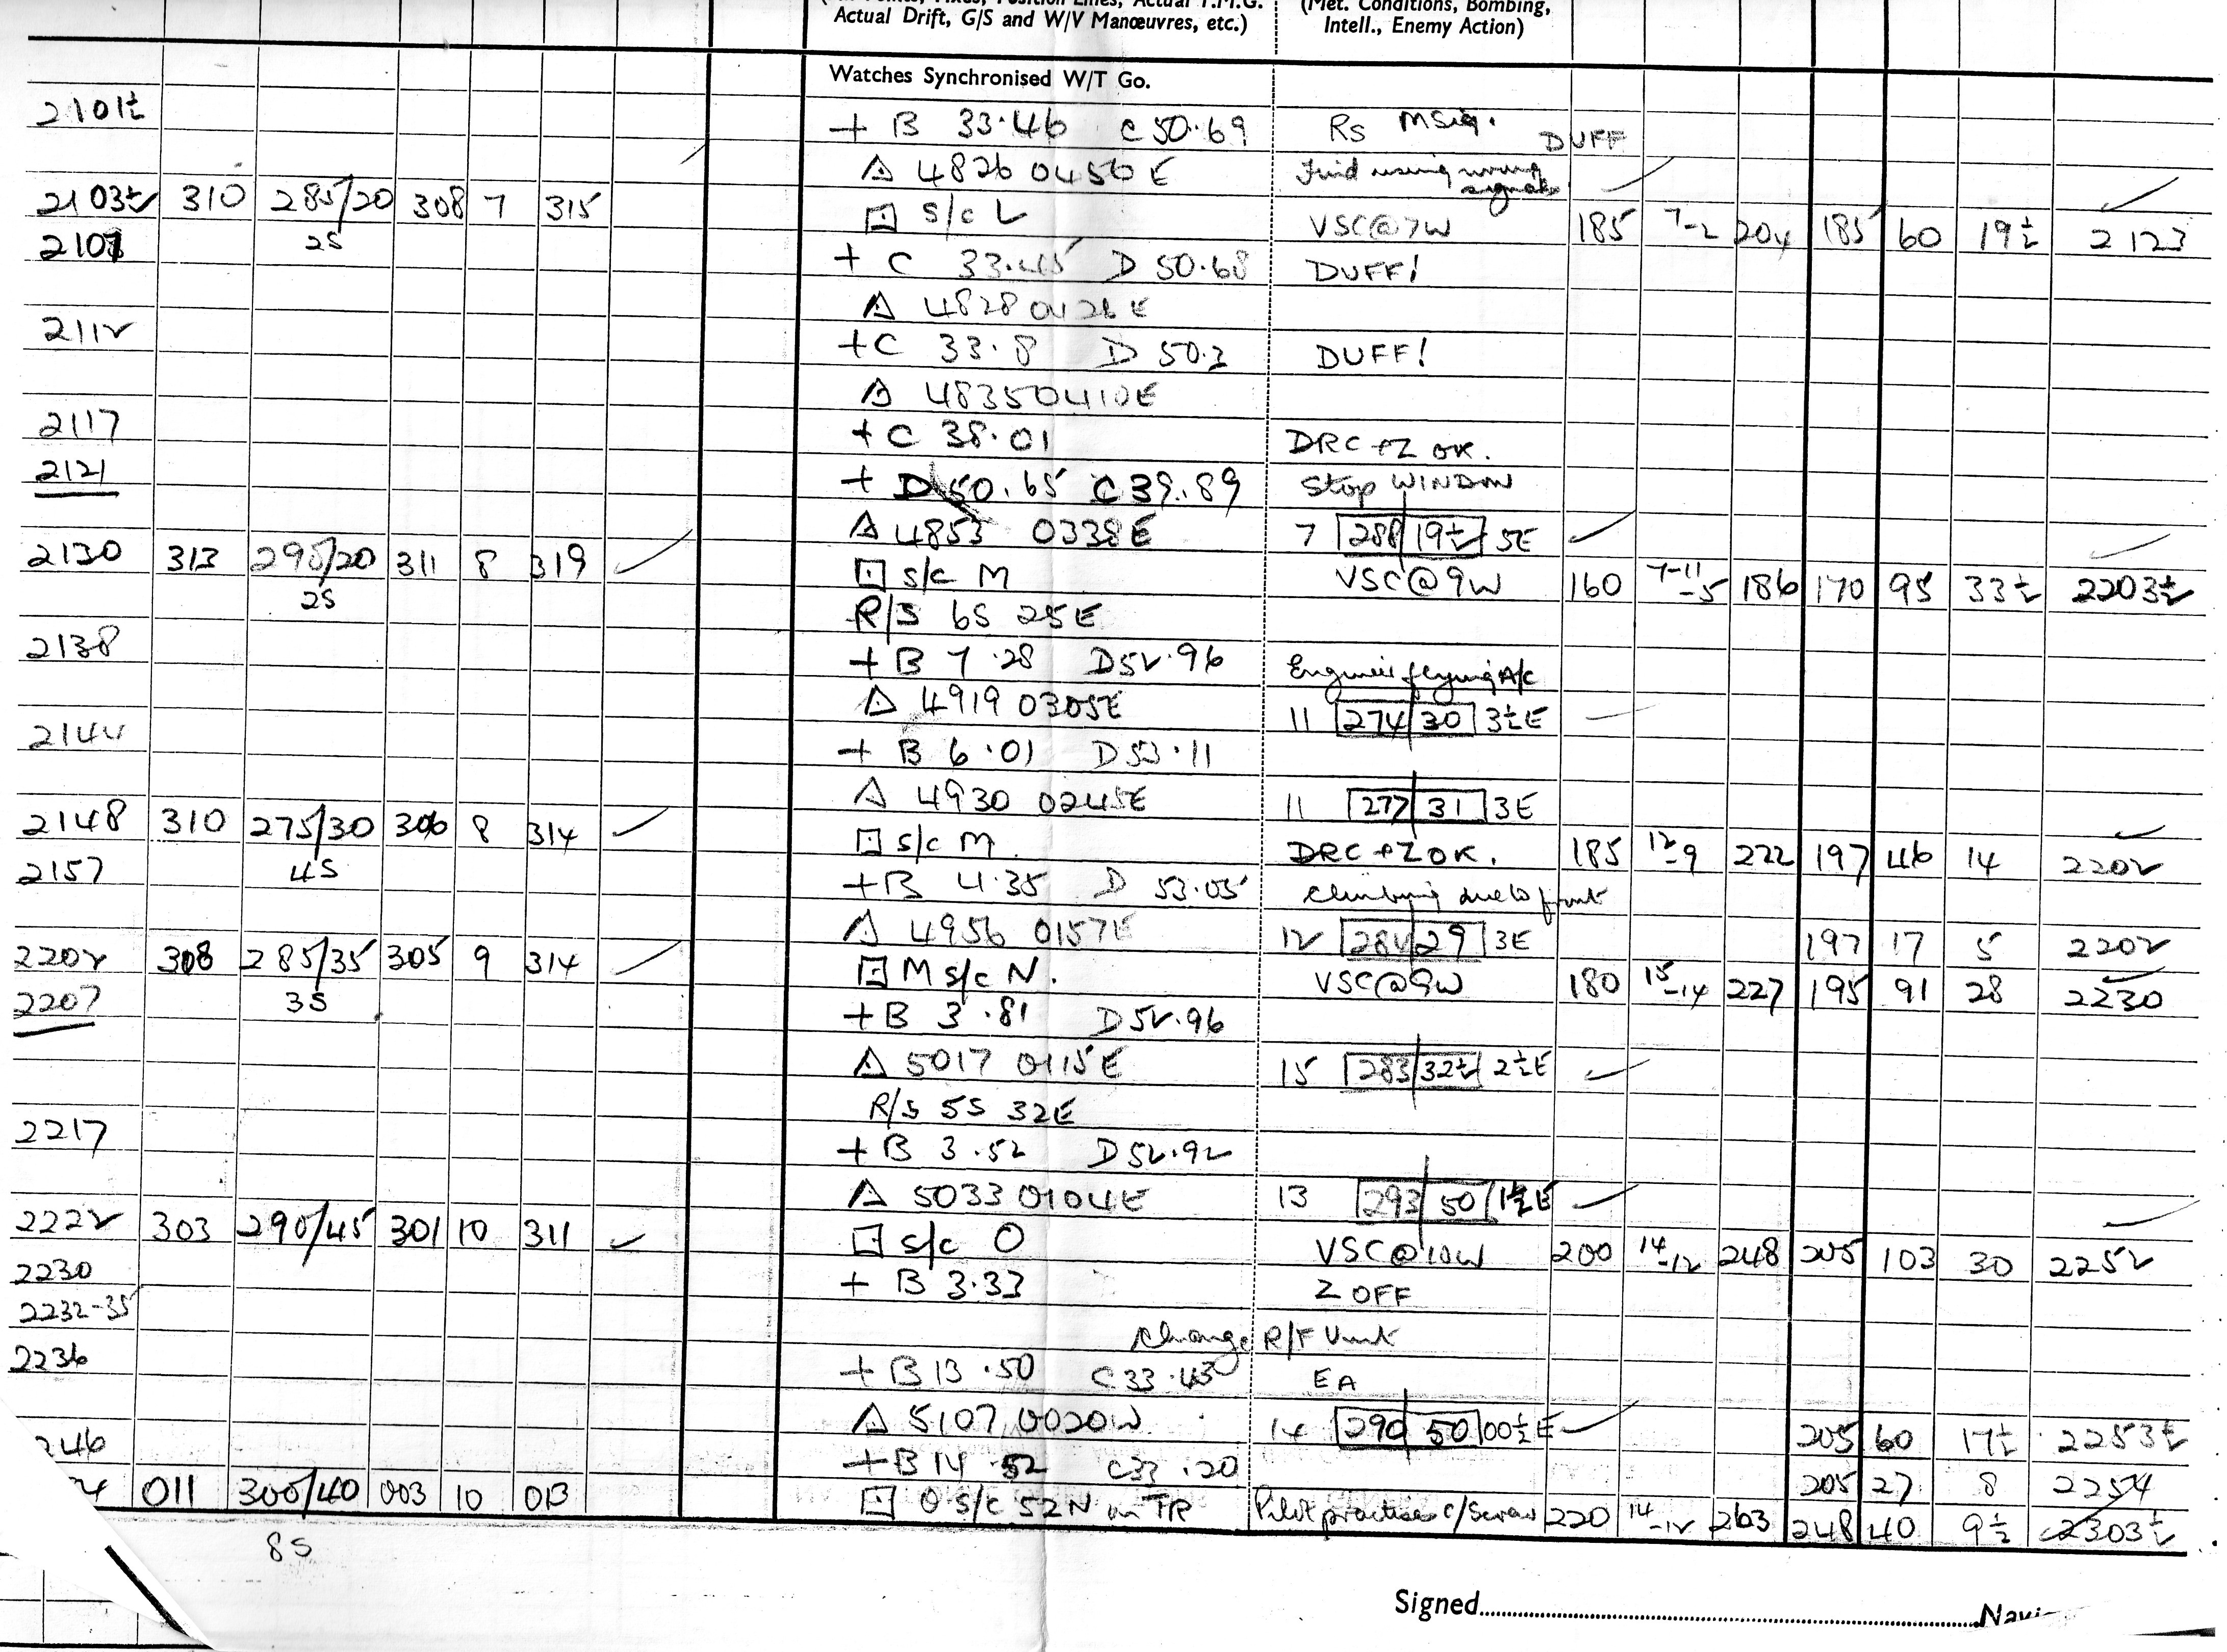 Actual Drift, G/S and W/V Manœuvres, etc.) (Met. Conditions, Bombing,
Intell., Enemy Action)
Watches Synchronised W/T Go.
2101½ + B 33.46 C 50.69 Rs MSig. DUFF
△ 4826 0456E Find using wrong signals
2103½ 310 285/20 308 7 315 ⊡ S/C L VSC@7W 185 7 -2 204 185 60 19½ 2123
2107 25 + C 33.45 D 50.68 DUFF!
△ 4828 0426E
2112 + C 33.8 D 50.3 DUFF!
△ 4835 0410E
2117 + C 38.01 DRC + Z OK.
2121 + D 50.65 C 39.89 Stop WINDOW
△ 4853 0338E 7 288/19½ 5E
2130 313 295/20 311 8 319 ⊡ S/C M VSC@9W 160 7-11 -5 186 170 95 33½ 2203½
25 R/S 6S 25E
2138 + B 7.28 D 52.96 Engineer flying A/C
△ 4919 0305E 11 274/30 3½E
2144 + B 6.01 D 53.11
△ 4930 0245E 11 277/31 3E
2148 310 275/30 306 8 314 ⊡ S/C M DRC + Z OK. 185 12 -9 222 197 46 14 2202
2157 45 + B 4.35 D 53.05 Climbing due to front
△ 4956 0157E 12 284/29 3E 197 17 5 2202
2202 308 285/35 305 9 314 ⊡ M S/C N. VSC@9W 180 15 -14 227 195 91 28 2230
2207 35 + B 3.81 D 52.96
△ 5017 0115E 15 283/32½ 2½E
R/S 5S 32E
2217 + B 3.52 D 52.92
△ 5033 0104E 13 293/50 1½E
2222 303 290/45 301 10 311 ⊡ S/C O VSC@10W 200 14 -12 248 205 103 30 2252
2230 + B 3.33 Z OFF
2232-35 Change R/F Unit
2236 + B 13.50 C 33.43 EA
△ 5107 0020W 14 290/50 00½E 205 60 17½ 2253½
246 + B 14.52 C 33.20 205 27 8 2254
4 011 300/40 003 10 013 ⊡ O S/C 52N on TR Pilot practises C/Screw 220 14 -12 263 248 40 9½ 2303½
85
Signed